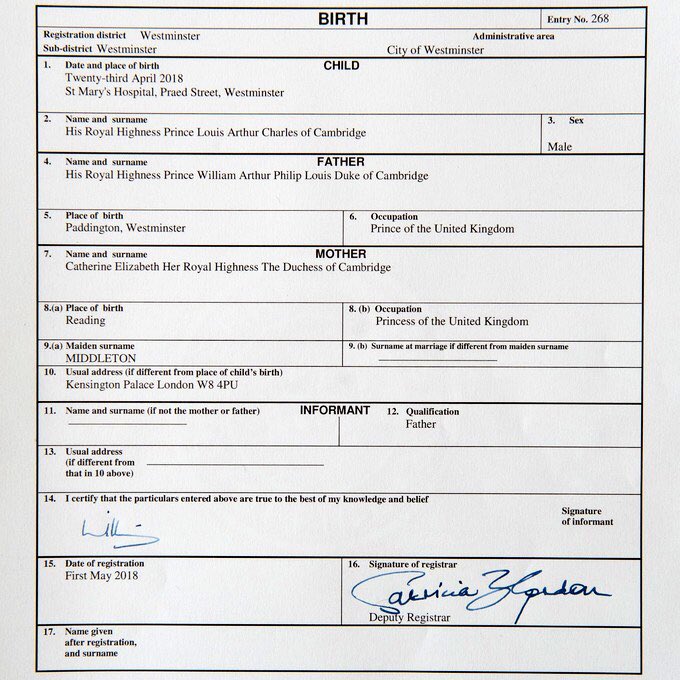 BIRTH
Entry No. 268
Registration district Westminster
Administrative area
Sub-district Westminster
City of Westminster
1. Date and place of birth
CHILD
Twenty-third April 2018
St Mary's Hospital, Praed Street, Westminster
2. Name and surname
His Royal Highness Prince Louis Arthur Charles of Cambridge
3. Sex
Male
4. Name and surname
FATHER
His Royal Highness Prince William Arthur Philip Louis Duke of Cambridge
5. Place of birth
Paddington, Westminster
6. Occupation
Prince of the United Kingdom
7. Name and surname
MOTHER
Catherine Elizabeth Her Royal Highness The Duchess of Cambridge
8.(a) Place of birth
Reading
8. (b) Occupation
Princess of the United Kingdom
9.(a) Maiden surname
MIDDLETON
9. (b) Surname at marriage if different from maiden surname
10. Usual address (if different from place of child's birth)
Kensington Palace London W8 4PU
11. Name and surname (if not the mother or father)
INFORMANT
12. Qualification
Father
13. Usual address
(if different from
that in 10 above)
14. I certify that the particulars entered above are true to the best of my knowledge and belief
Signature
of informant
15. Date of registration
First May 2018
16. Signature of registrar
Patricia Gordon
Deputy Registrar
17. Name given
after registration,
and surname